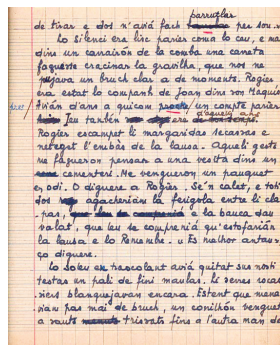 parruglar
de tirar e dos n'aviá fach
Lo silenci era linc parièr coma lo cèu, e mai
dins un canairòn de la comba una caneta
faguèsse cracinar la gravilha, que nos ne
pujava un bruch clar a de moments. Rogièr
èra estat lo companh de Joan dins son Maquis
Avián d'ans a quicom pròche un compte parièr
Ieu tanben èri d'aquels ans
Rogièr escampèt li margaridas secarosas e
netegèt l'embàs de la lausa. Aquell gèste
me faguèron pensar a una vesita dins un
cementèri. Me venguèron un pauquet
en òdi. O diguère a Rogièr. Se'n calèt, e toti
dos agachèriam la feugièra entre li cla-
pas, e la bauca dau
valat, que ieu se compreniá qu'estofariàn
la lausa e lo Renembre. « Es melhor antau »
ço diguère.
Lo solèu en trescolant aviá quitat sus nosti
testas un pali de fini maulas. Li sèrres rocas-
sièrs blanquejavan encara. Estent que mena-
viam pas mai de bruch, un conilhòn venguèt
a vauts trievats fins a l'autra man de